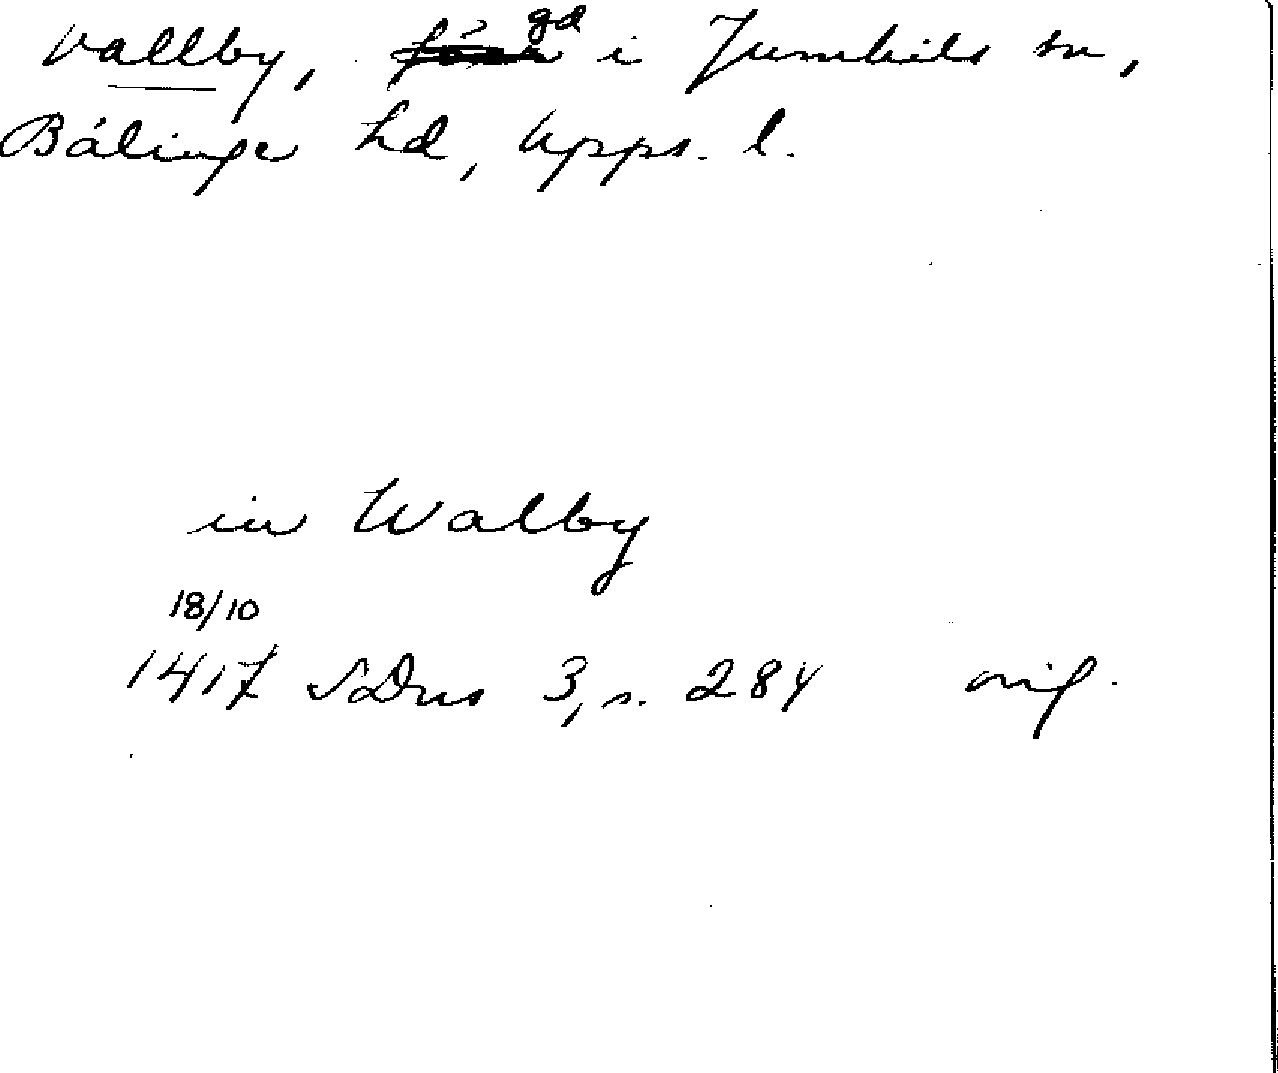 Vallby, gd i Jumkils sn,
Bälinge hd, Upps. l.
in Walby
18/10
1417 SDns 3, s. 284 orig.